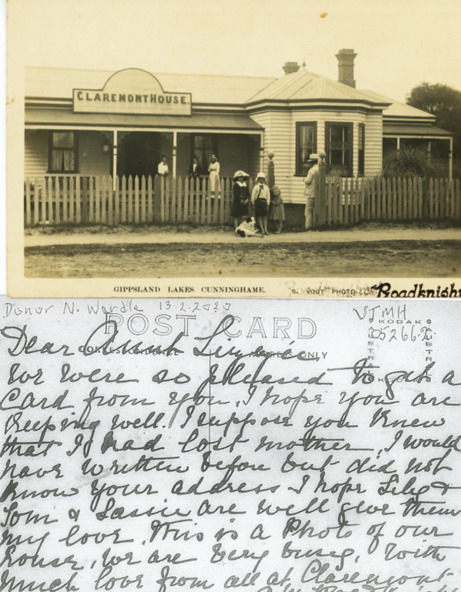 CLAREMONT HOUSE.
GIPPSLAND LAKES CUNNINGHAME.
PHOTO
Roadknight
Donor N. Wardle 13.2.2020
VJMH
POST CARD
KODAK
05266.2
ONLY
Dear Aunt
We were so pleased to get a
Card from you, I hope you are
Keeping well. I suppose you knew
that I had lost mother, I would
have written before but did not
know your address I hope Lily &
Tom & Lassie are well give them
my love, This is a Photo of our
house, We are very busy, with
much love from all at Claremont